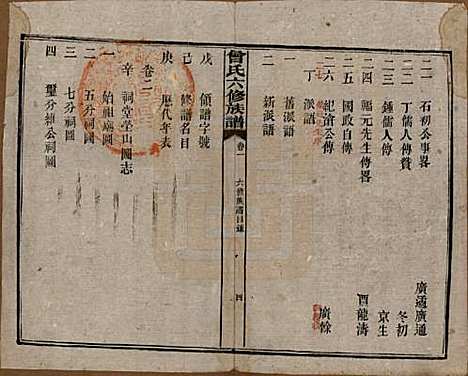 二一 石初公事畧 廣適廣通
二二 丁儒人傳贊 冬初
二三 鍾儒人傳 京生
二四 福元先生傳畧 酉龍濤
二五 國政自傳
二六 紀淦公傳 廣餘
丁 派語
一 舊派語
二 新派語
曾氏六修族譜 卷一 六修族譜目錄 四
戊 領譜字號
己 修譜名目
庚 歷代年表
卷二
辛 祠堂塋山圖志
一 始祖廟圖
二 五分祠圖
三 七分祠圖
四 璽分維公祠圖